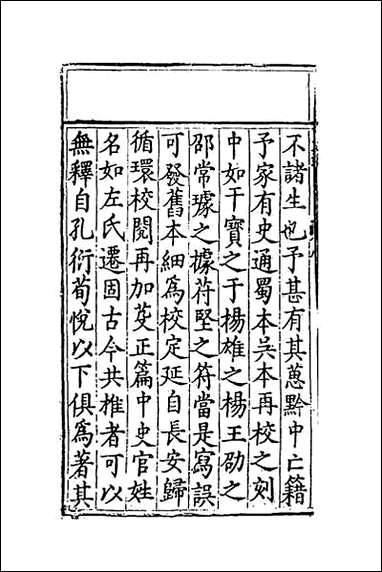 不諸生也予甚有其蒽黔中亡籍
予家有史通蜀本吳本再校之刻
中如干寳之于楊雄之楊王劭之
邵常璩之據苻堅之符當是寫誤
可發舊本細爲校定延自長安歸
循環校閱再加芟正篇中史官姓
名如左氏遷固古今共推者可以
無釋自孔衍荀悅以下俱爲著其